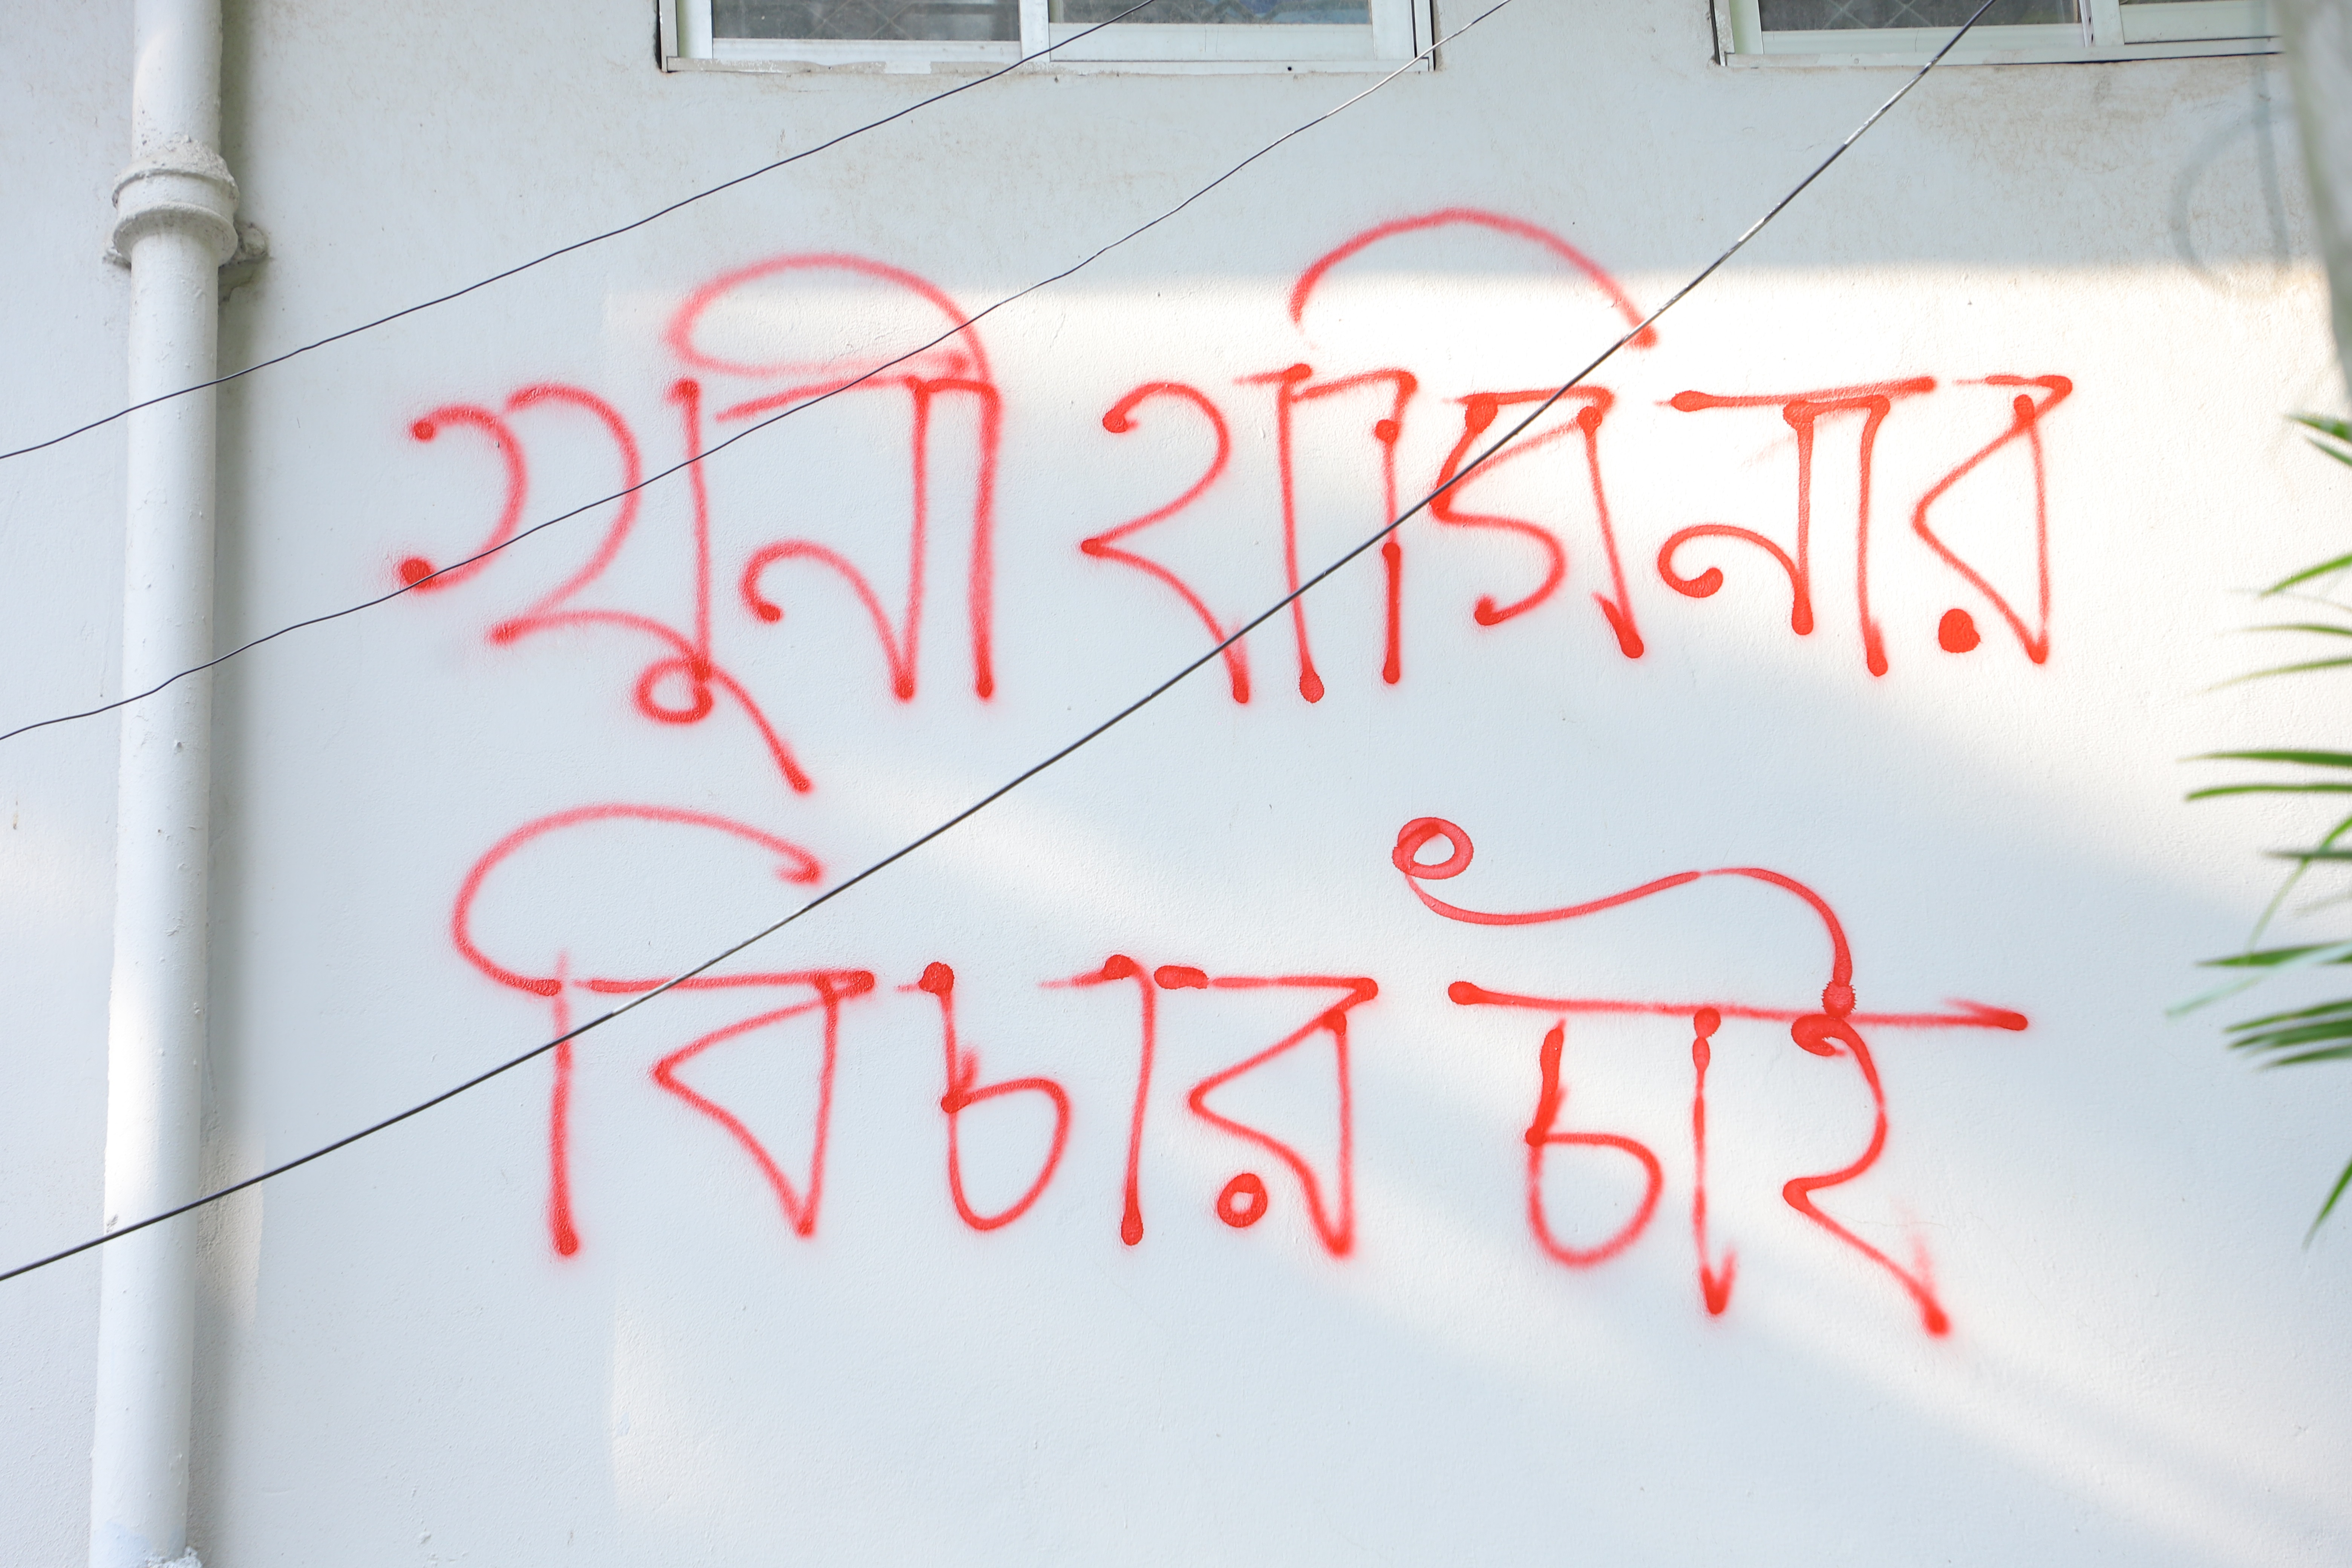 খুনী হাসিনার
বিচার চাই